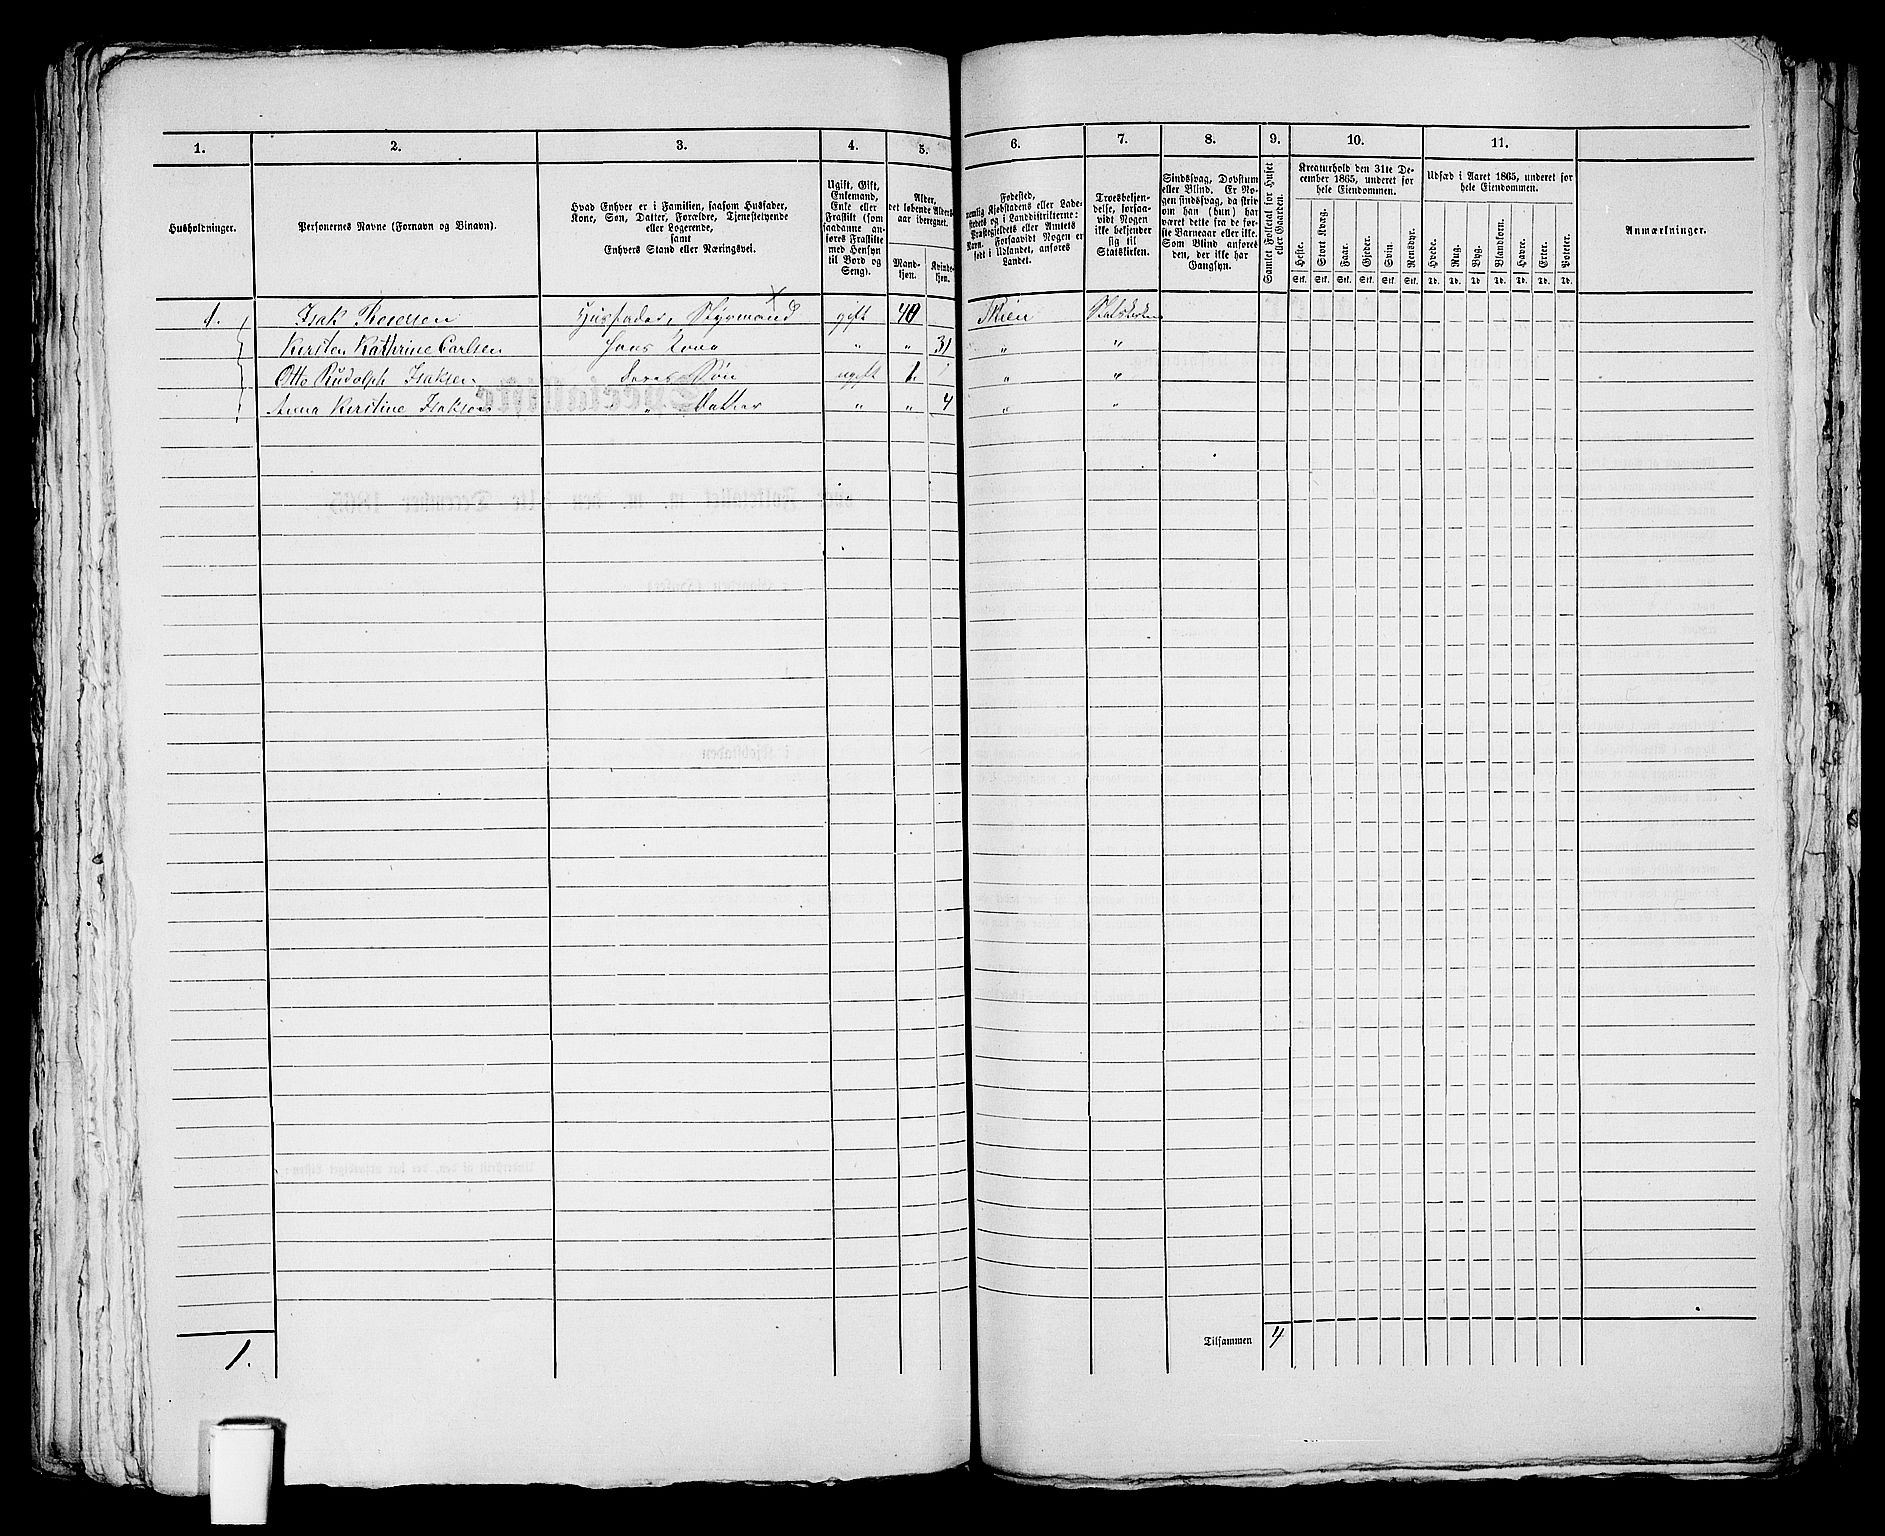 1. 2. 3. 4. 5. 6. 7. 8. 9. 10. 11.
Husholdninger.
Personernes Navne (Fornavn og Binavn).
Hvad Enhver er i Familien, saasom Husfader,
Kone, Søn, Datter, Forældre, Tjenestetyende
eller Logerende,
samt
Enhvers Stand eller Næringsvei.
Ugift, Gift,
Enkemand,
Enke eller
Fraskilt (som
saadanne an-
føres Fraskilte
med Hensyn
til Bord og
Seng).
Alder,
det løbende Alders-
aar iberegnet.
Mand-
kjøn.
Kvinde-
kjøn.
Fødested,
nemlig Kjøbstadens eller Lade-
stedets og i Landdistrikterne:
Præstegjeldets eller Amtets
Navn. Forsaavidt Nogen er
født i Udlandet, anføres
Landet.
Troesbekjen-
delse, forsaa-
vidt Nogen
ikke bekjender
sig til
Statskirken.
Sindssvag, Døvstum
eller Blind. Er No-
gen sindssvag, da skriv
om han (hun) har
været dette fra de før-
ste Barneaar eller ikke.
Som Blind anføres
den, der ikke har
Gangsyn.
Samlet Folketal for Huset
eller Gaarden.
Kreaturhold den 31te De-
cember 1865, underet for
hele Eiendommen.
Heste. Stort Kvæg. Faar. Gjeder. Svin. Rensdyr.
Stk. Stk. Stk. Stk. Stk. Stk.
Udsæd i Aaret 1865, underet for
hele Eiendommen.
Hvede. Rug. Byg. Blandkorn. Havre. Erter. Poteter.
Td. Td. Td. Td. Td. Td. Td.
Anmærkninger.
1. Isak Husfader, Styrmand gift 40 Skien Statskirken
Kersten Kathrine Carlsen Hans Kone " " 31 " "
Otto Rudolph Isaksen deres Søn ugift 1. " "
Anna Kerstine Isaksen " Datter " " 4 " "
Tilsammen 4
1.